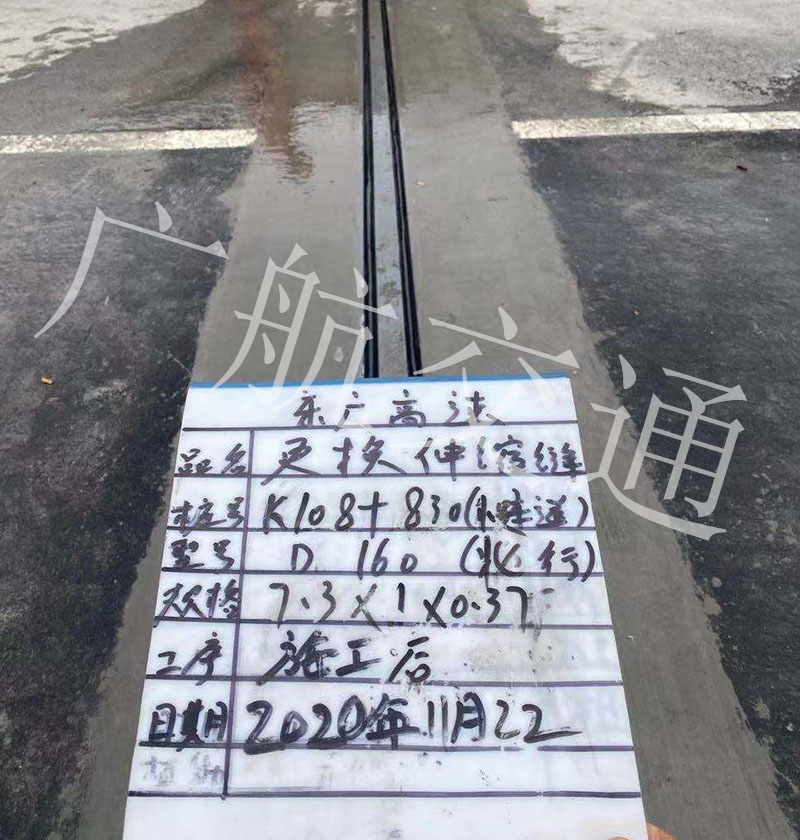 广航交通
乐广高速
品名 更换伸缩缝
桩号 K108+830
型号 D 160 (北行)
规格 7.3X1X0.37
工序 施工后
日期 2020年11月22